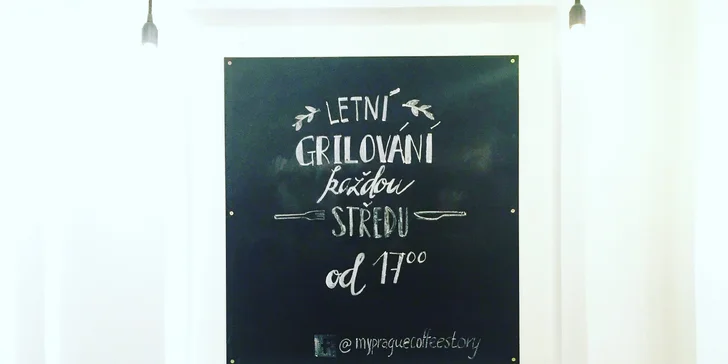 LETNÍ
GRILOVÁNÍ
každou
STŘEDU
od 17⁰⁰
@mypraguecoffeestory